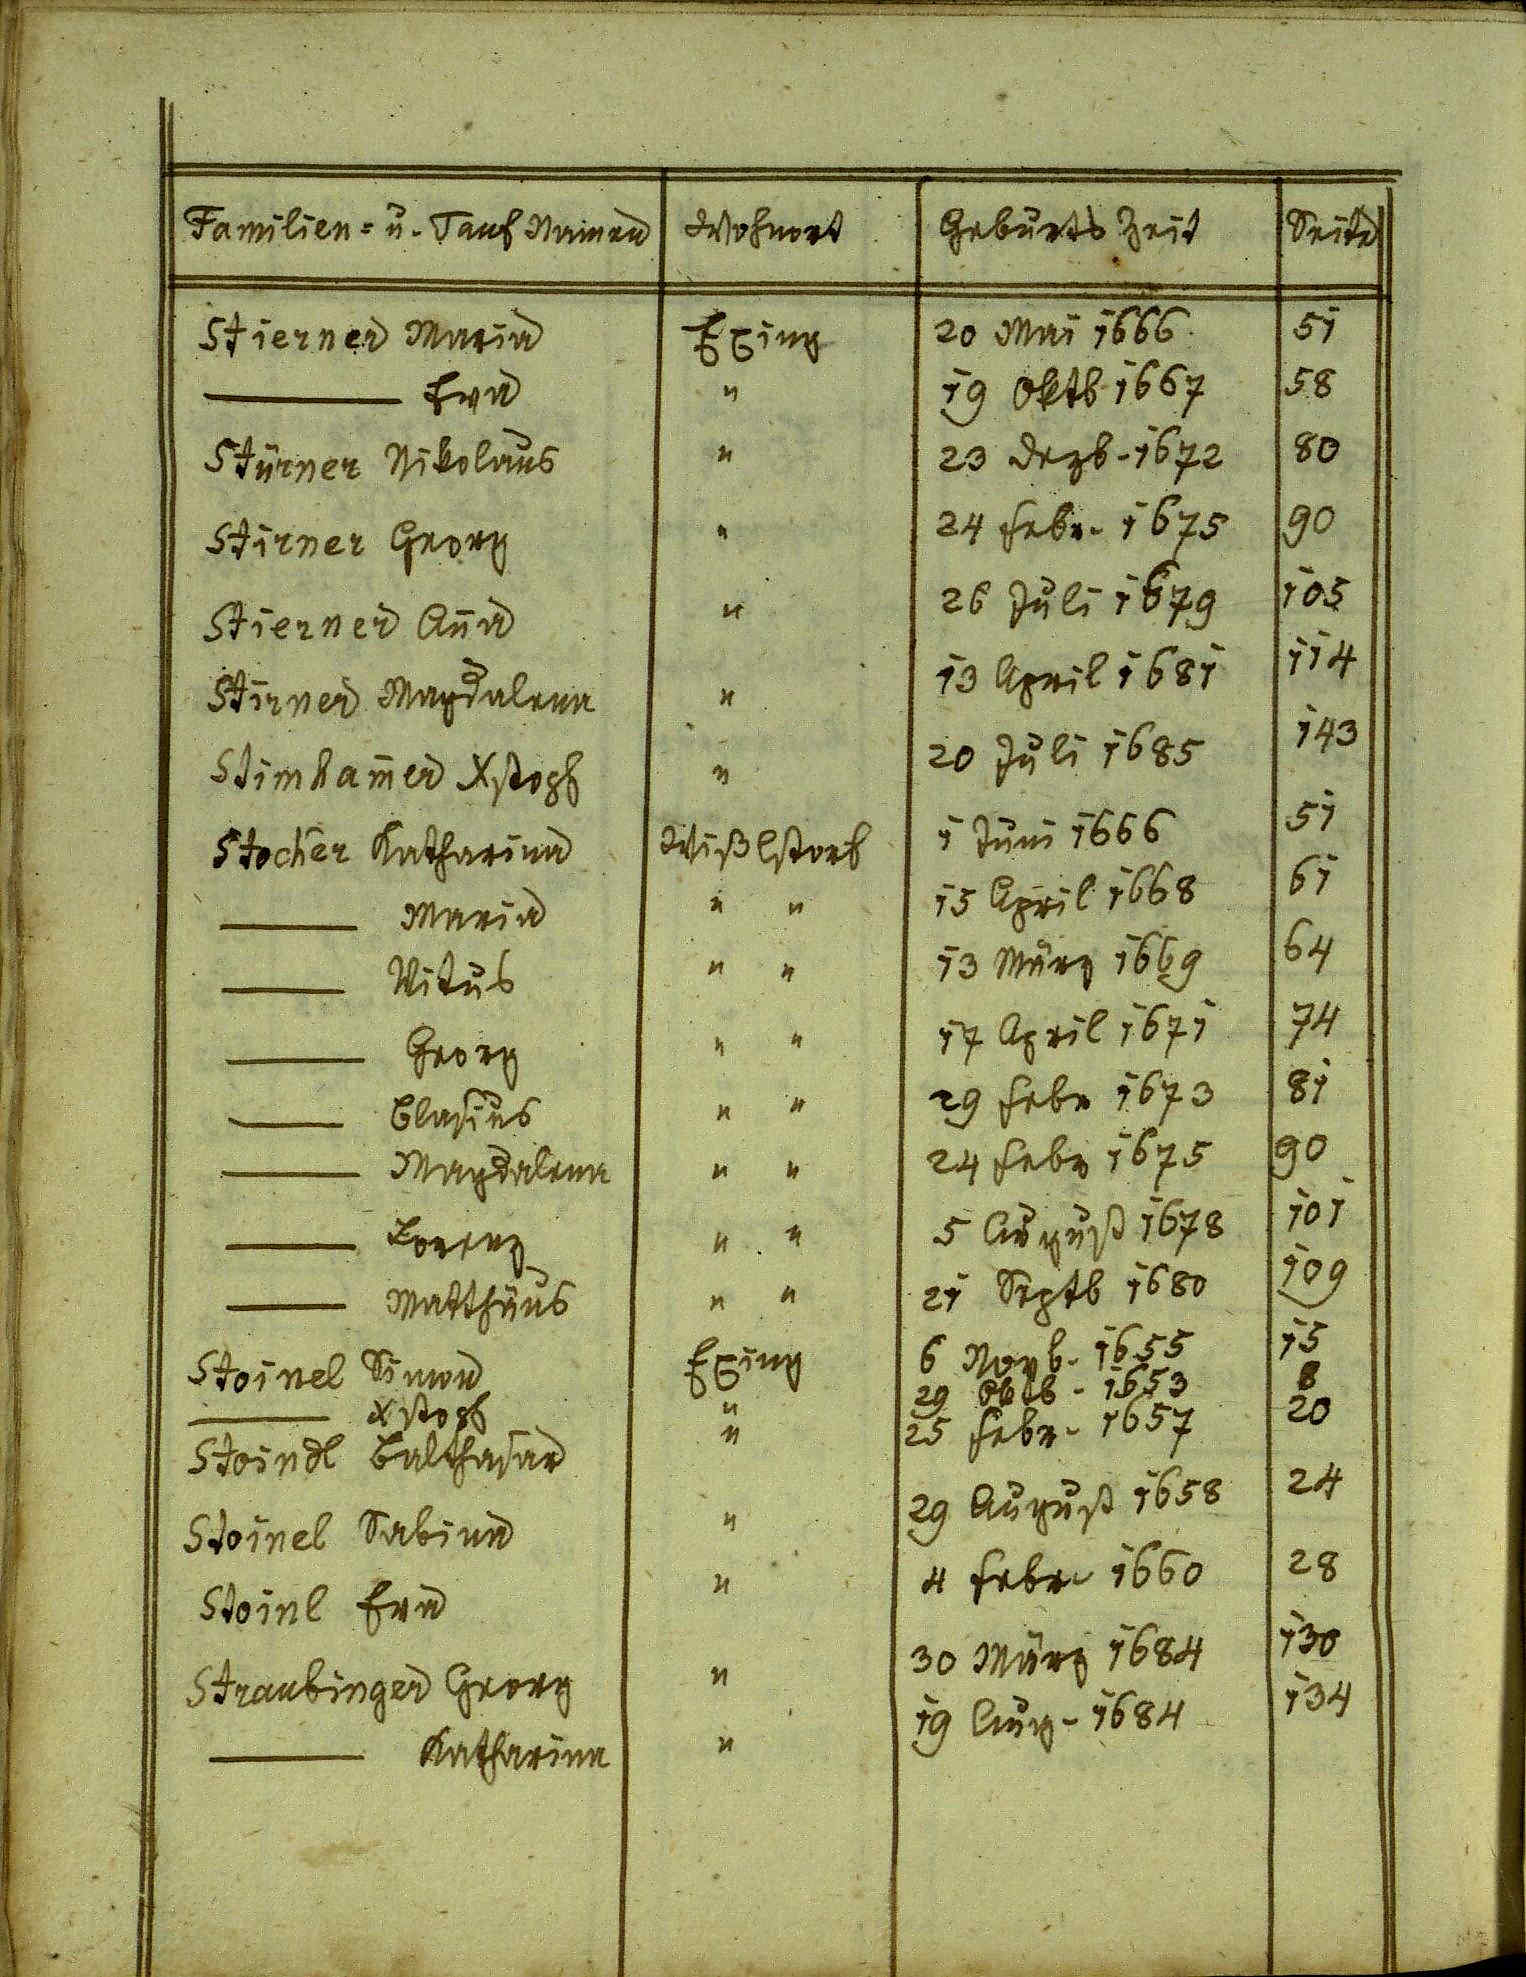 Familien- u. Tauf Namen Wohnort Geburts Zeit Seite
Stierner Maria Exing 20 Mai 1666 51
——— Eva " 19 Oktb 1667 58
Stürner Nikolaus " 23 Dezb. 1672 80
Stirner Georg " 24 Febr. 1675 90
Stierner Aña " 26 Juli 1679 105
Stirner Magdalena " 13 April 1681 114
Stimham̃er Xstoph " 20 Juli 1685 143
Stocher Katharina Wißlstorf 1 Juni 1666 51
——— Maria " " 15 April 1668 61
——— Vitus " " 13 März 1669 64
——— Georg " " 17 April 1671 74
——— Blasius " " 29 Febr 1673 81
——— Magdalena " " 24 Febr 1675 90
——— Lorenz " " 5 August 1678 101
——— Matthäus " " 21 Septb 1680 109
Stoinel Simon Exing 6 Novb. 1655 15
——— Xstoph " 29 Oktb - 1653 8
Stoindl Balthasar " 25 Febr. 1657 20
Stoinel Sabina " 29 August 1658 24
Stoinl Eva " 4 Febr. 1660 28
Straubinger Georg " 30 März 1684 130
——— Katharina " 19 Aug. 1684 134